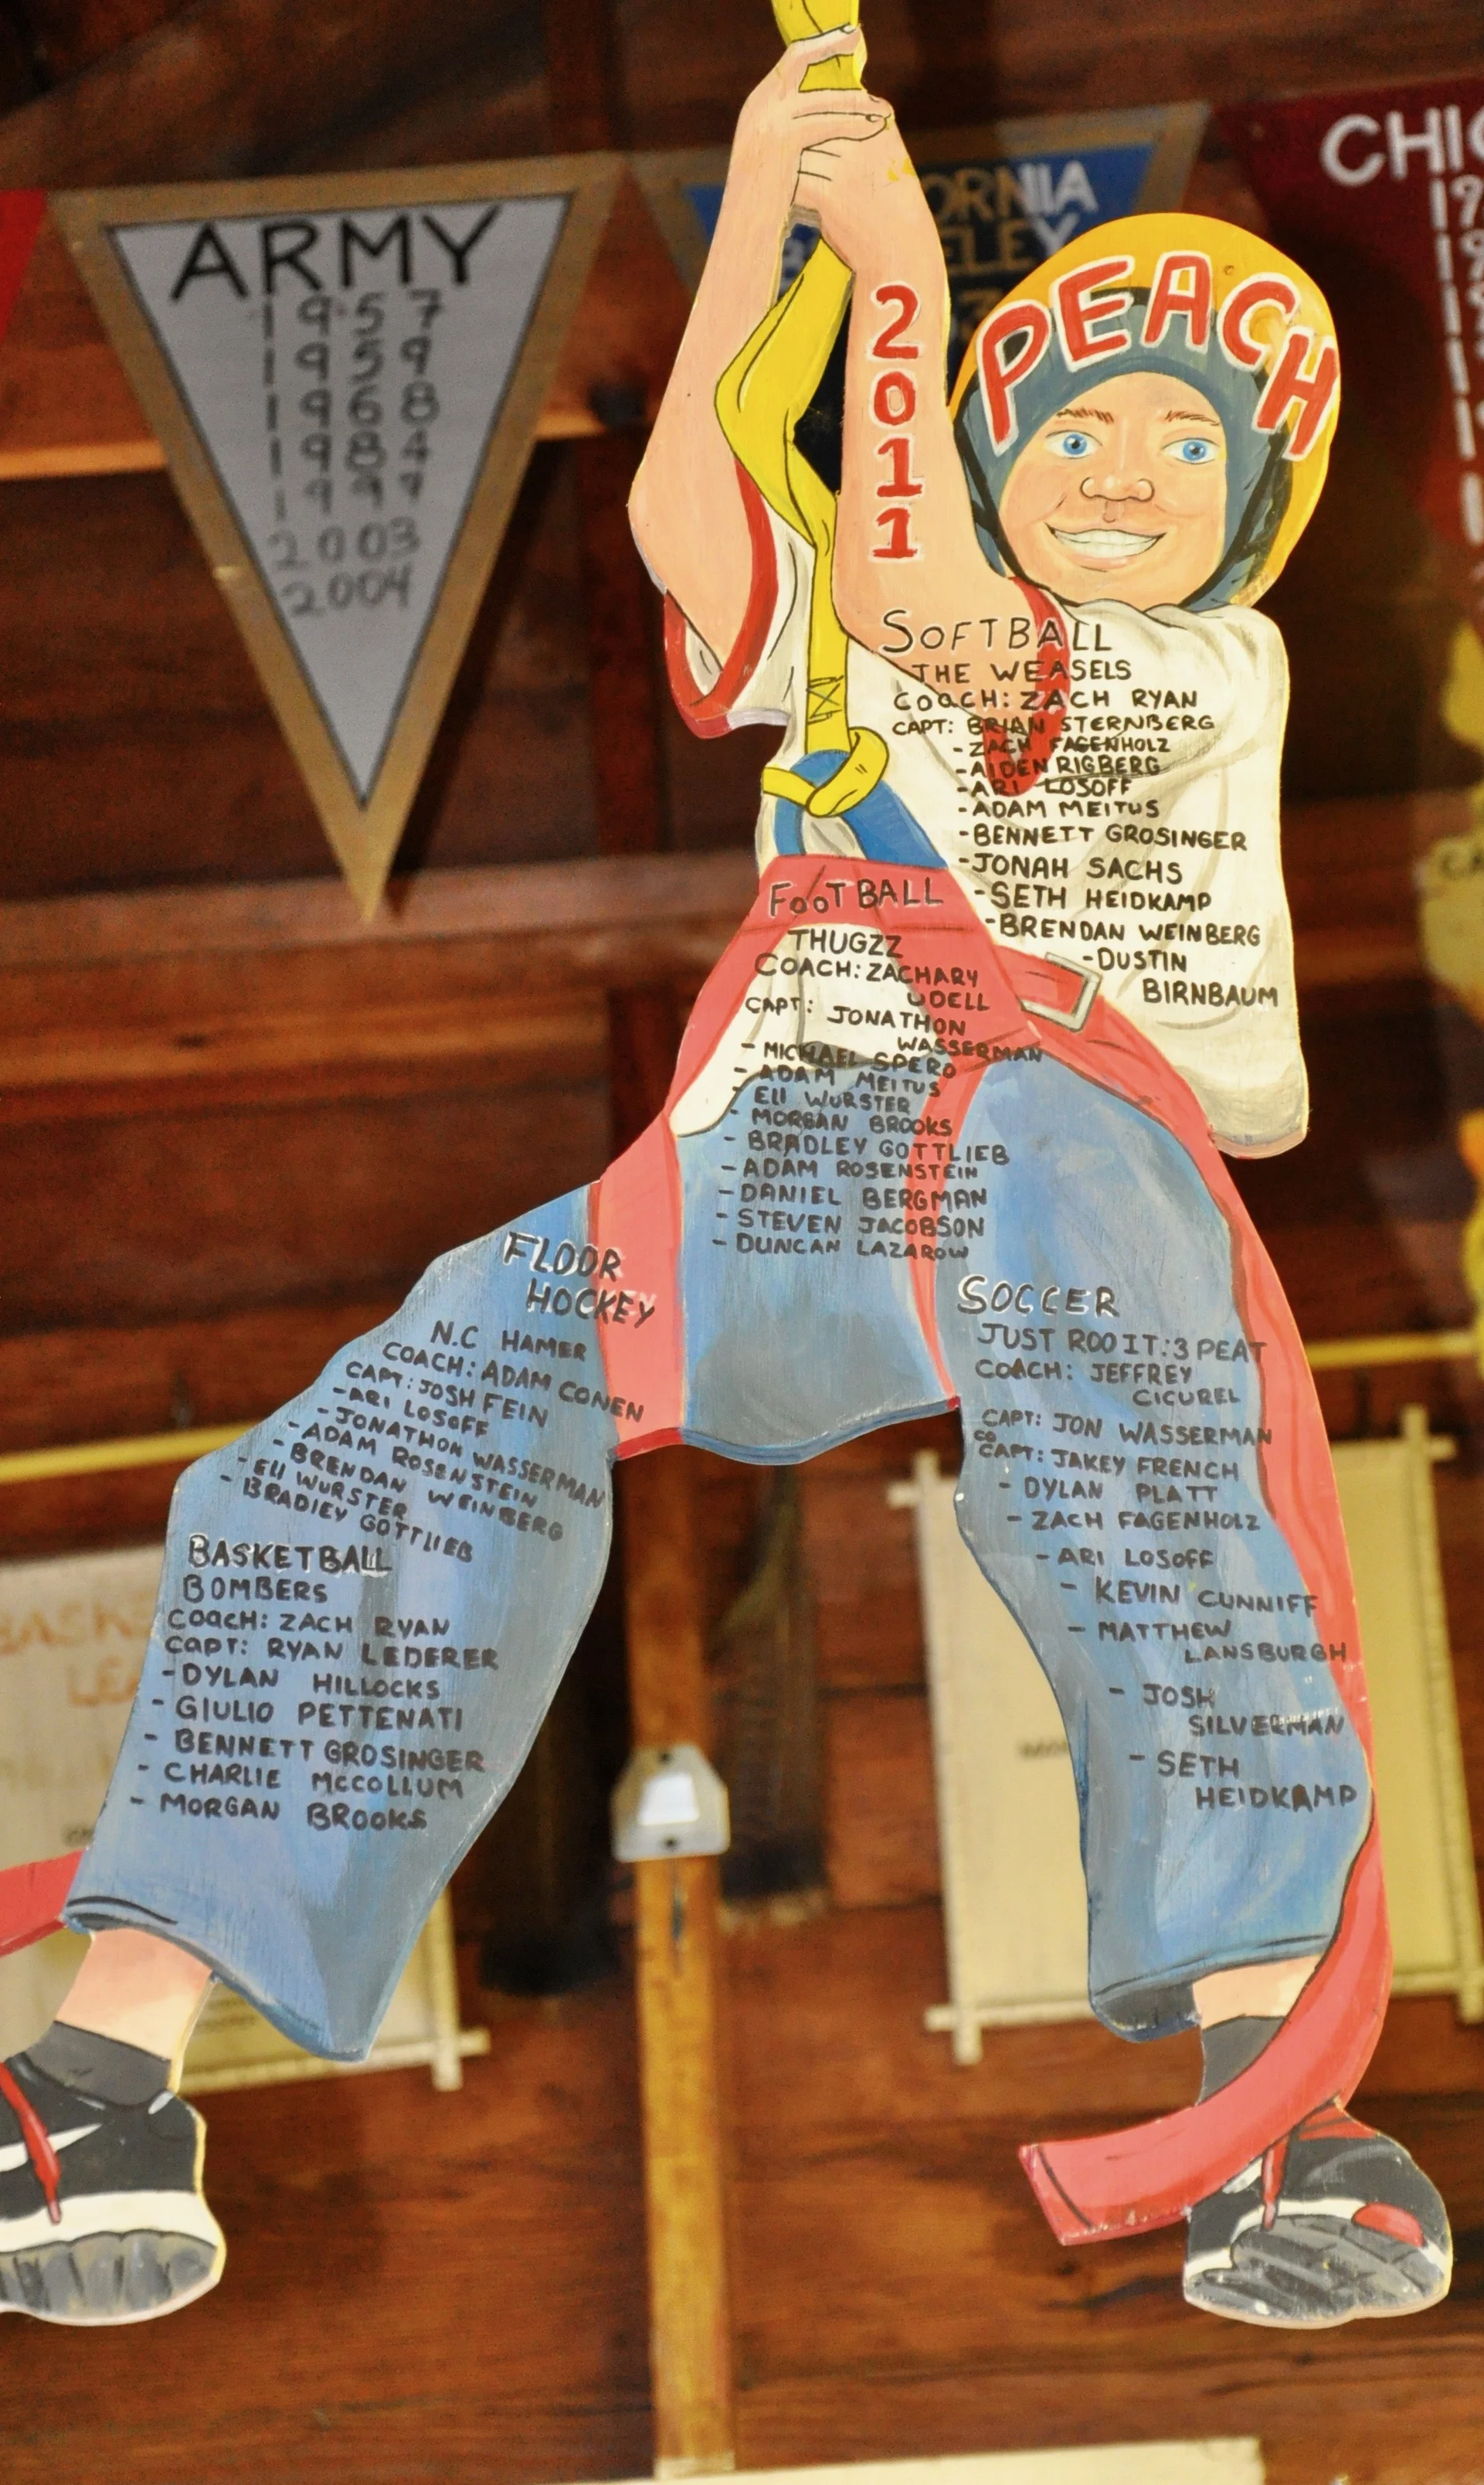 ARMY
1957
1959
1968
1984
1999
2003
2004
CHIC
PEACH
2011
SOFTBALL
THE WEASELS
COACH: ZACH RYAN
CAPT: BRIAN STERNBERG
-ZACH FAGENHOLZ
-AIDEN RIGBERG
-ARI LOSOFF
-ADAM MEITUS
-BENNETT GROSINGER
-JONAH SACHS
-SETH HEIDKAMP
-BRENDAN WEINBERG
-DUSTIN
BIRNBAUM
FOOTBALL
THUGZZ
COACH: ZACHARY
UDELL
CAPT: JONATHON
WASSERMAN
- MICHAEL SPERO
- ADAM MEITUS
- ELI WURSTER
- MORGAN BROOKS
- BRADLEY GOTTLIEB
- ADAM ROSENSTEIN
- DANIEL BERGMAN
- STEVEN JACOBSON
- DUNCAN LAZAROW
FLOOR
HOCKEY
N.C HAMER
COACH: ADAM CONEN
CAPT: JOSH FEIN
-ARI LOSOFF
-JONATHON WASSERMAN
-ADAM ROSENSTEIN
-BRENDAN WEINBERG
-ELI WURSTER
-BRADLEY GOTTLIEB
BASKETBALL
BOMBERS
COACH: ZACH RYAN
CAPT: RYAN LEDERER
-DYLAN HILLOCKS
- GIULIO PETTENATI
- BENNETT GROSINGER
- CHARLIE MCCOLLUM
- MORGAN BROOKS
SOCCER
JUST ROO IT: 3 PEAT
COACH: JEFFREY
CICUREL
CAPT: JON WASSERMAN
CO
CAPT: JAKEY FRENCH
- DYLAN PLATT
- ZACH FAGENHOLZ
- ARI LOSOFF
- KEVIN CUNNIFF
- MATTHEW
LANSBURGH
- JOSH
SILVERMAN
- SETH
HEIDKAMP